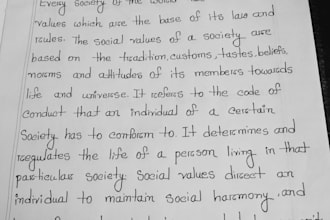 Every society of the world
values which are the base of its law and
rules. The social values of a society are
based on the tradition, customs, tastes, beliefs,
norms and attitudes of its members towards
life and universe. It refers to the code of
conduct that an individual of a certain
Society has to conform to. It determines and
regulates the life of a person living in that
particular society. Social values direct an
individual to maintain social harmony and